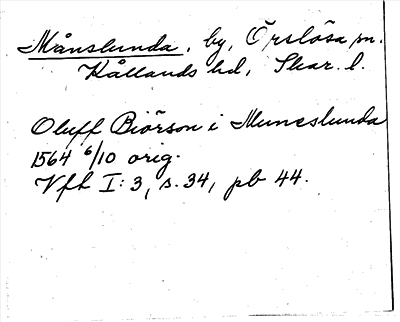 Månslunda, by, Örslösa sn.
Kållands hd, Skar. l.
Oluff Biörson i Muneslunda
1564 6/10 orig.
Vfh I: 3, s. 34, pb 44.